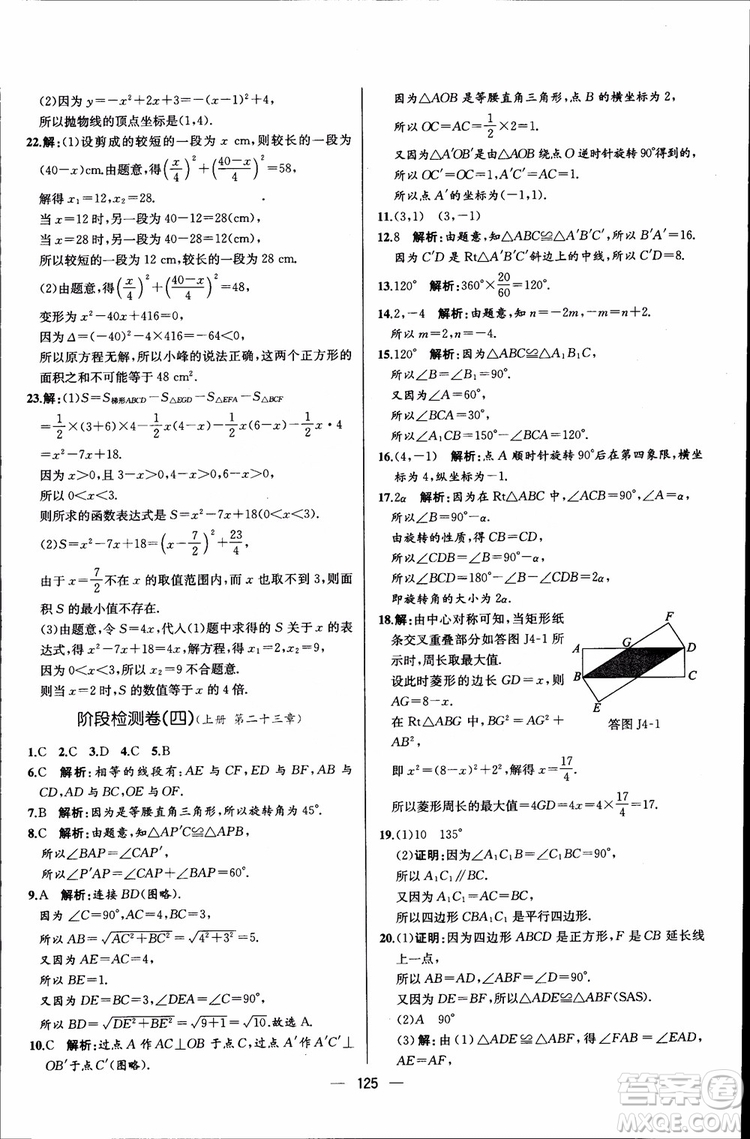 (2)因为 y=-x²+2x+3=-(x-1)²+4,
所以抛物线的顶点坐标是(1,4).
22.解:(1)设剪成的较短的一段为 x cm,则较长的一段为
(40-x)cm.由题意,得(x/4)²+((40-x)/4)²=58,
解得 x₁=12,x₂=28.
当 x=12 时,另一段为 40-12=28(cm),
当 x=28 时,另一段为 40-28=12(cm).
所以较短的一段为 12 cm,较长的一段为 28 cm.
(2)由题意,得(x/4)²+((40-x)/4)²=48,
变形为 x²-40x+416=0,
因为 Δ=(-40)²-4×416<0,
所以原方程无解,所以小峰的说法正确,这两个正方形的
面积之和不可能等于 48 cm².
23.解:(1)S=S梯形ABCD-S△EGD-S△EFA-S△BCF
=1/2×(3+6)×4-1/2x(4-x)-1/2x(6-x)-1/2(3-x)·4
=x²-7x+18.
因为 x>0,且 3-x>0,且 4-x>0,
所以 0<x<3.
则所求的函数表达式是 S=x²-7x+18(0<x<3).
(2)S=x²-7x+18=(x-7/2)²+23/4,
由于 x=7/2不在 x 的取值范围内,而 0<x<3,因此,面
积 S 的最小值不存在.
(3)由题意,得 S=4x,代入(1)题中求得的 S 关于 x 的表
达式,得 x²-7x+18=4x,解方程,得 x₁=2,x₂=9.
因为 0<x<3,所以 x=9 不合题意.
则当 x=2 时,S 的数值等于 x 的 4 倍.
阶段检测卷(四)(上册 第二十三章)
1.C 2.C 3.D 4.C 5.B
6.C 解析:相等的线段有:AE 与 CF,ED 与 BF,AD 与
CB,CD 与 AB,OE 与 OF,OD 与 OB.
7.B 解析:因为是等腰直角三角形,所以旋转角为 45°.
8.C 解析:由题意,知△AP′C≌△APB,
所以∠BAP=∠CAP′,
所以∠P′AP=∠CAP+∠BAP=60°.
9.A 解析:连接 BD(图略).
因为∠C=90°,AC=4,BC=3,
所以 AB=√(AC²+BC²)=√(4²+3²)=5.
又因为 AE=AC=4,
所以 BE=1.
又因为 DE=BC=3,∠DEA=∠C=90°,
所以 BD=√(DE²+BE²)=√(9+1)=√10.故选 A.
10.C 解析:过点 A 作 AC⊥OB 于点 C,过点 A′作 A′C′⊥
OB′于点 C′(图略).
因为△AOB 是等腰直角三角形,点 B 的横坐标为 2,
所以 OC=AC=1/2×2=1.
又因为△A′OB′是△AOB 绕点 O 逆时针旋转 90°得到的,
所以 OC′=OC=1,A′C′=AC=1.
所以点 A′的坐标为(-1,1).
11.(3,1) (3,-1)
12.8 解析:由题意,知△ABC≌△A′B′C′,所以 A′B′=16.
因为 C′D 是 Rt△A′B′C′斜边上的中线,所以 C′D=8.
13.120° 解析:360°×20/60=120°.
14.2,-4 解析:由题意,知 n=-2m,-m=n+2.
所以 m=2,n=-4.
15.120° 解析:由题意,知△ABC≌△A₁B₁C,
所以∠B=∠B₁=90°.
又因为∠A=60°,
所以∠BCA=30°,
所以∠A₁CB=150°-30°=120°.
16.(4,-1) 解析:点 A 顺时针旋转 90°后在第四象限,横坐
标为 4,纵坐标为-1.
17.2α 解析:因为在 Rt△ABC 中,∠ACB=90°,∠A=α,
所以∠B=90°-α.
由旋转的性质,得 CB=CD,
所以∠CDB=∠B=90°-α.
所以∠BCD=180°-∠B-∠CDB=2α.
即旋转角的大小为 2α.
18.解:由中心对称可知,当矩形纸
条交叉重叠部分如答图 J4-1 所
示时,周长取最大值.
设此时菱形的边长 GD=x,则
AG=8-x.
在 Rt△ABG 中,BG²=AG²+
AB²,
即 x²=(8-x)²+2²,解得 x=17/4.
所以菱形周长的最大值=4GD=4×17/4=17.
F
A
G
D
B
C
E
答图 J4-1
19.(1)10 135°
(2)证明:因为∠A₁C₁B=∠C₁BC=90°,
所以 A₁C₁∥BC.
又因为 A₁C₁=AC=BC,
所以四边形 CBA₁C₁是平行四边形.
20.(1)证明:因为四边形 ABCD 是正方形,F 是 CB 延长线
上一点,
所以 AB=AD,∠ABF=∠ADE=90°.
又因为 BF=DE,所以△ADE≌△ABF(SAS).
(2)A 90°
(3)解:由(1)△ADE≌△ABF,得∠FAB=∠EAD,
AE=AF,
— 125 —
答案圈
MXQE.COM